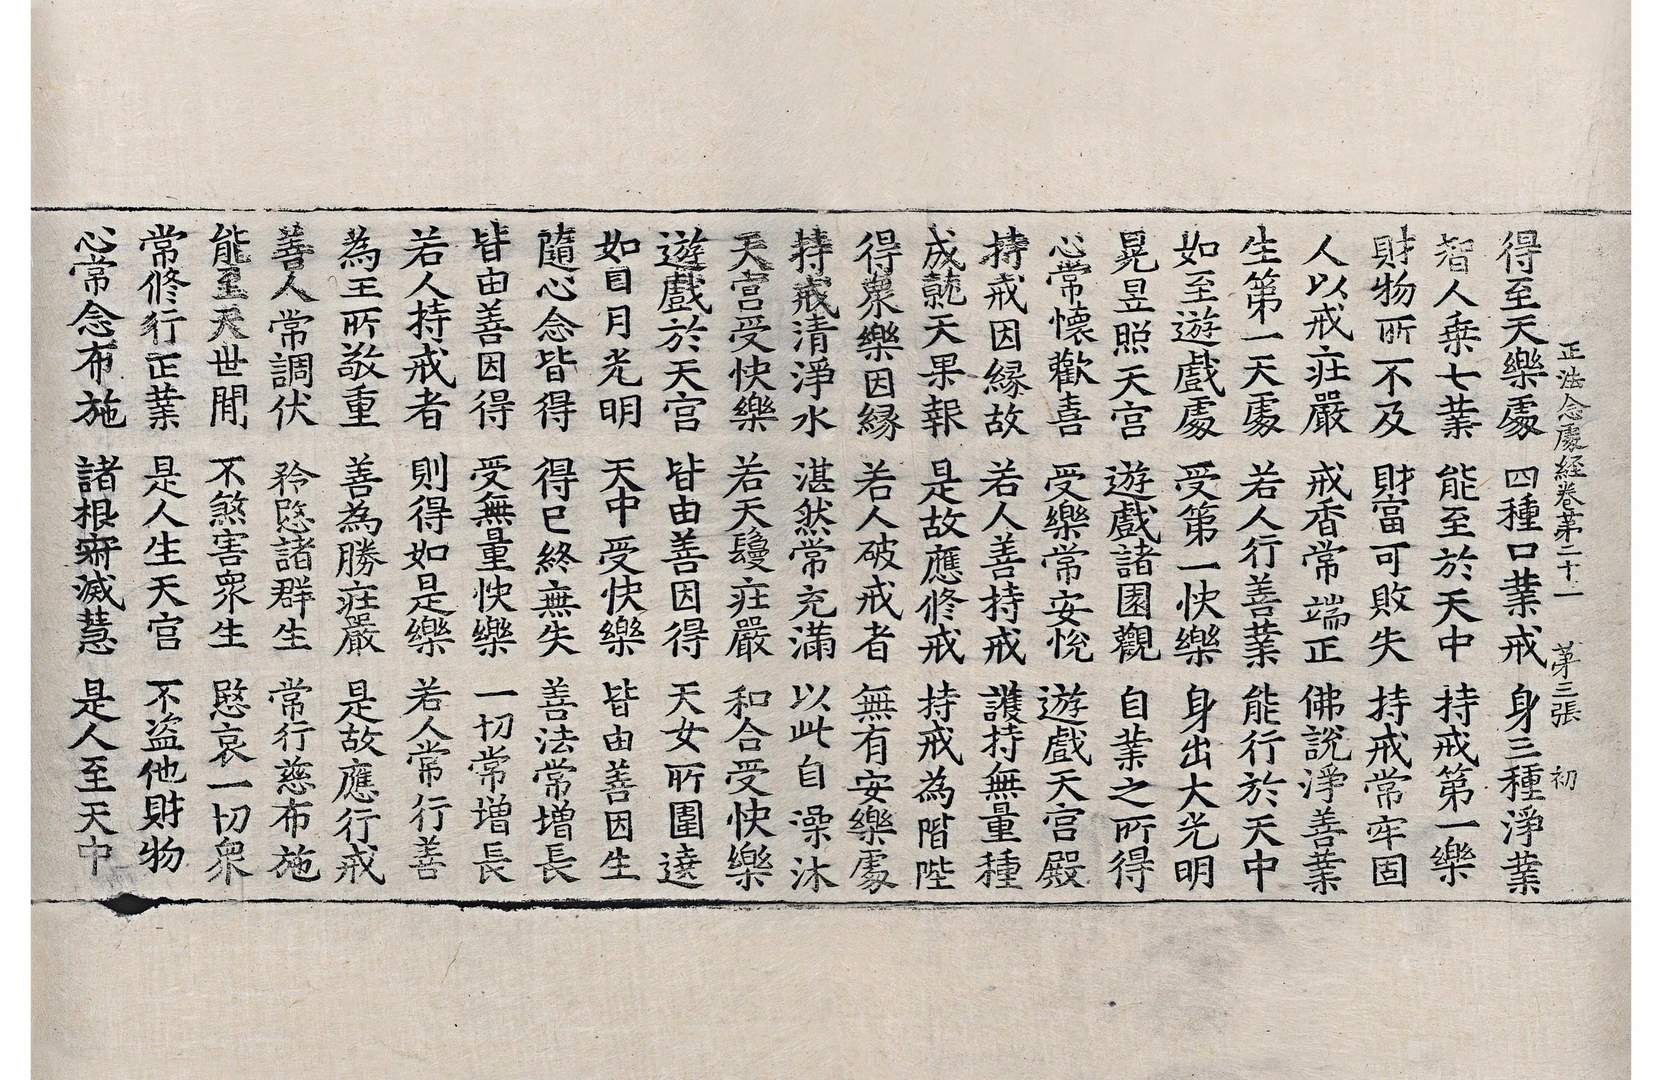 正法念處經卷第二十一 第三張 初
得至天樂處 四種口業戒 身三種淨業
智人乗七業 能至於天中 持戒第一樂
財物所不及 財富可敗失 持戒常牢固
人以戒莊嚴 戒香常端正 佛說淨善業
生第一天處 若人行善業 能行於天中
如至遊戲處 受第一快樂 身出大光明
晃昱照天宮 遊戲諸園觀 自業之所得
心常懷歡喜 受樂常安悅 遊戲天宮殿
持戒因縁故 若人善持戒 護持無量種
成就天果報 是故應修戒 持戒為階陛
得衆樂因縁 若人破戒者 無有安樂處
持戒清淨水 湛然常充滿 以此自澡沐
天宮受快樂 若天鬘莊嚴 和合受快樂
遊戲於天宮 皆由善因得 天女所圍遶
如日月光明 天中受快樂 皆由善因生
隨心念皆得 得已終無失 善法常增長
皆由善因得 受無量快樂 一切常增長
若人持戒者 則得如是樂 若人常行善
為王所敬重 善為勝莊嚴 是故應行戒
善人常調伏 矜愍諸群生 常行慈布施
能至天世間 不煞害衆生 愍哀一切衆
常修行正業 是人生天宮 不盜他財物
心常念布施 諸根寂滅慧 是人至天中